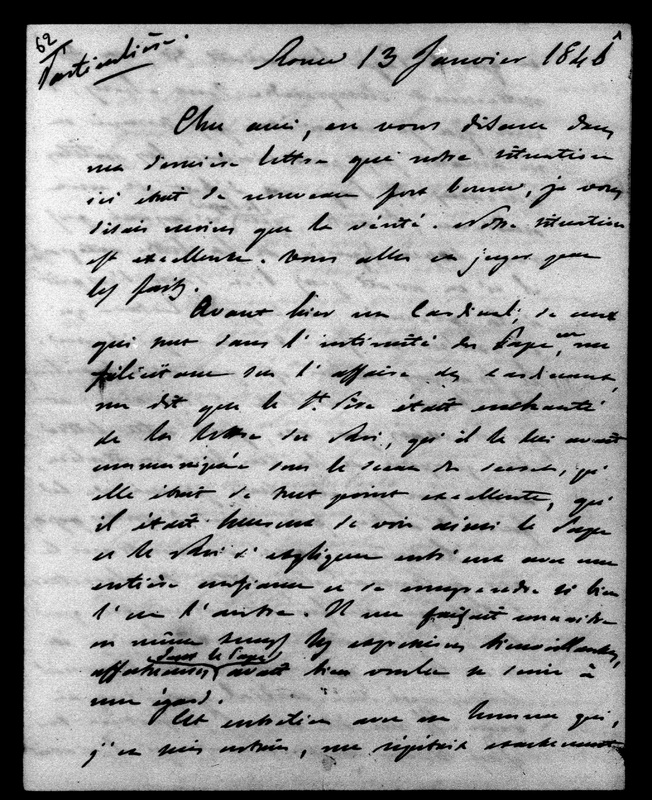 62
Particulière.
Rome 13 Janvier 1846
Cher ami, en vous disant dans
ma dernière lettre que notre situation
ici était de nouveau fort bonne, je vous
disais moins que la vérité. Notre situation
est excellente. Vous allez en juger par
les faits.
Avant hier un Cardinal, de ceux
qui sont dans l'intimité du Pape, en me
félicitant sur l'affaire des Cardinaux,
me dit que le St. Père était enchanté
de la lettre du Roi, qu'il le lui avait
communiquée sous le sceau du secret, qu'
elle était de tout point excellente, qu'
il était heureux de voir ainsi le Pape
et le Roi s'expliquer entr'eux avec une
entière confiance et se comprendre si bien
l'un l'autre. Il me faisait connaître
en même temps les expressions bienveillantes,
affectueuses dont le Pape avait bien voulu se servir à
mon égard.
Cet entretien avec un homme qui,
j'en suis certain, me répétait exactement